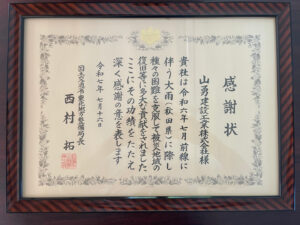 感謝状
山勇建設工業株式会社様
貴社は令和六年七月前線に
伴う大雨(秋田県)に際し
種々の困難を克服して被災地域の
復旧等に多大な貢献をされました
ここにその功績をたたえ
深く感謝の意を表します
令和七年七月十六日
国土交通省東北地方整備局長
西村 拓